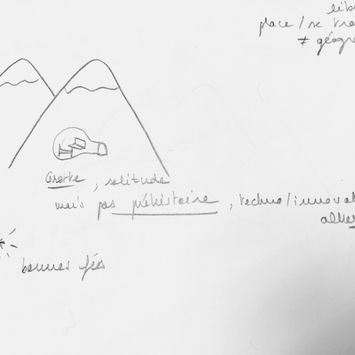 lib
place / se tra
≠ géogr
Grotte, solitude
mais pas préhistoire, techno/innovat
alter
bonnes fées